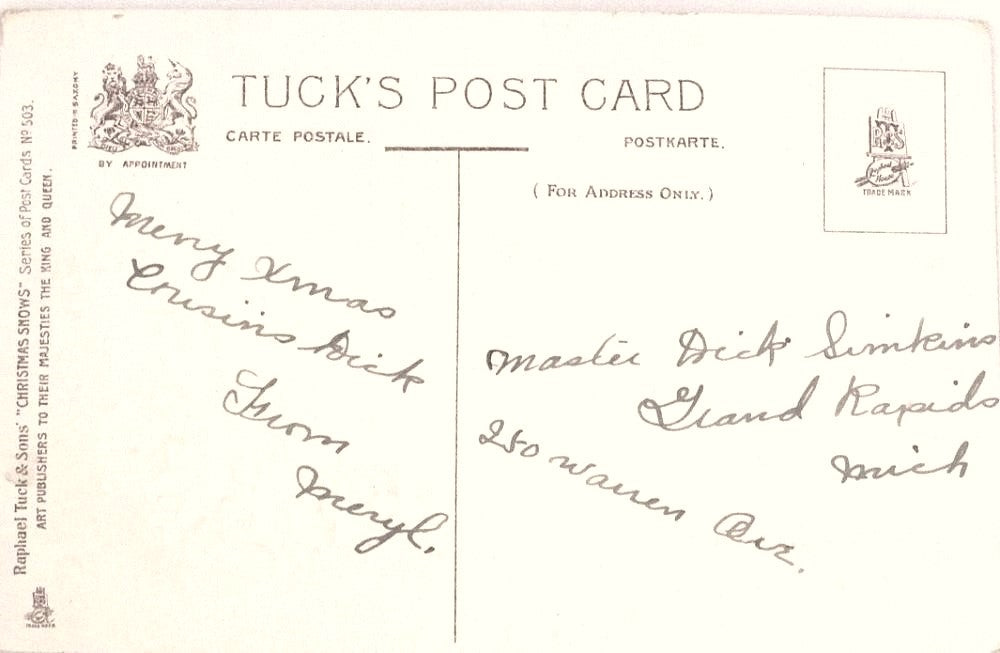 TUCK'S POST CARD
CARTE POSTALE.
POSTKARTE.
( FOR ADDRESS ONLY. )
PRINTED IN SAXONY
BY APPOINTMENT
Raphael Tuck & Sons' "CHRISTMAS SNOWS" Series of Post Cards Nº 503.
ART PUBLISHERS TO THEIR MAJESTIES THE KING AND QUEEN.
TRADE MARK
Merry Xmas
Cousins Dick
From
Meryl.
Master Dick Simkins
Grand Rapids
Mich
250 Warren Ave.
R T S
Raphael House
TRADE MARK